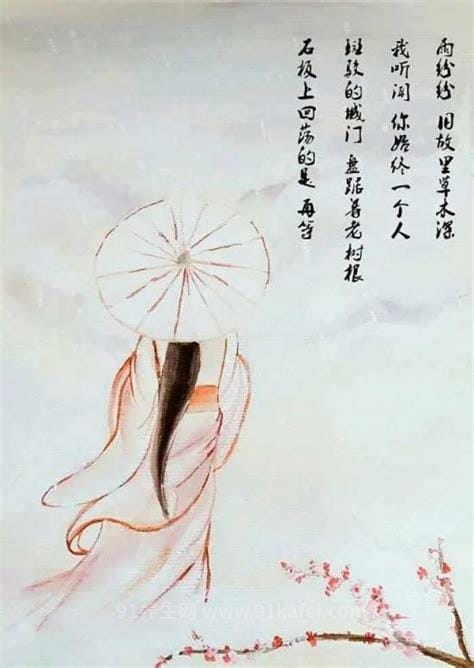 雨纷纷 旧故里草木深
我听闻 你始终一个人
斑驳的城门 盘踞着老树根
石板上回荡的是 再等
91养生网 www.91kafei.com